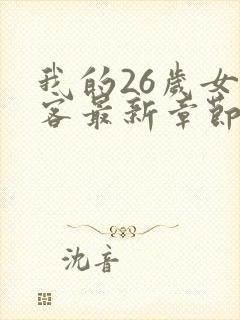 我的26歲女
客最新章節
沈音